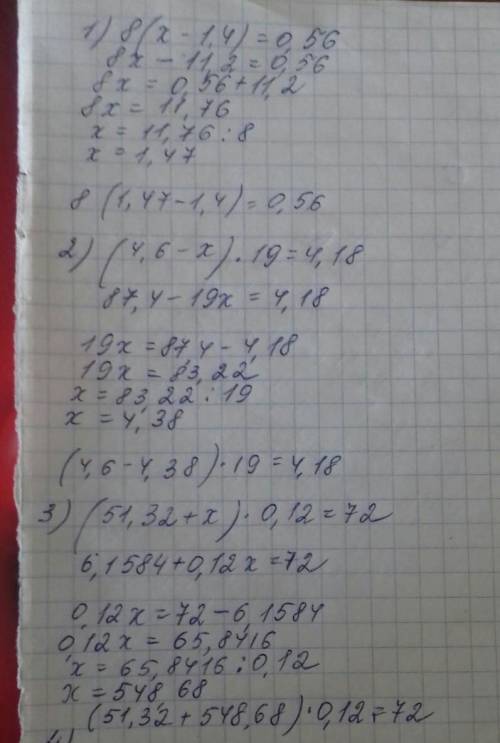 1) 8(x - 1,4) = 0,56
8x - 11,2 = 0,56
8x = 0,56 + 11,2
8x = 11,76
x = 11,76 : 8
x = 1,47
8 (1,47 - 1,4) = 0,56
2) (4,6 - x) · 19 = 4,18
87,4 - 19x = 4,18
19x = 87,4 - 4,18
19x = 83,22
x = 83,22 : 19
x = 4,38
(4,6 - 4,38) · 19 = 4,18
3) (51,32 + x) · 0,12 = 72
6,1584 + 0,12x = 72
0,12x = 72 - 6,1584
0,12x = 65,8416
x = 65,8416 : 0,12
x = 548,68
(51,32 + 548,68) · 0,12 = 72